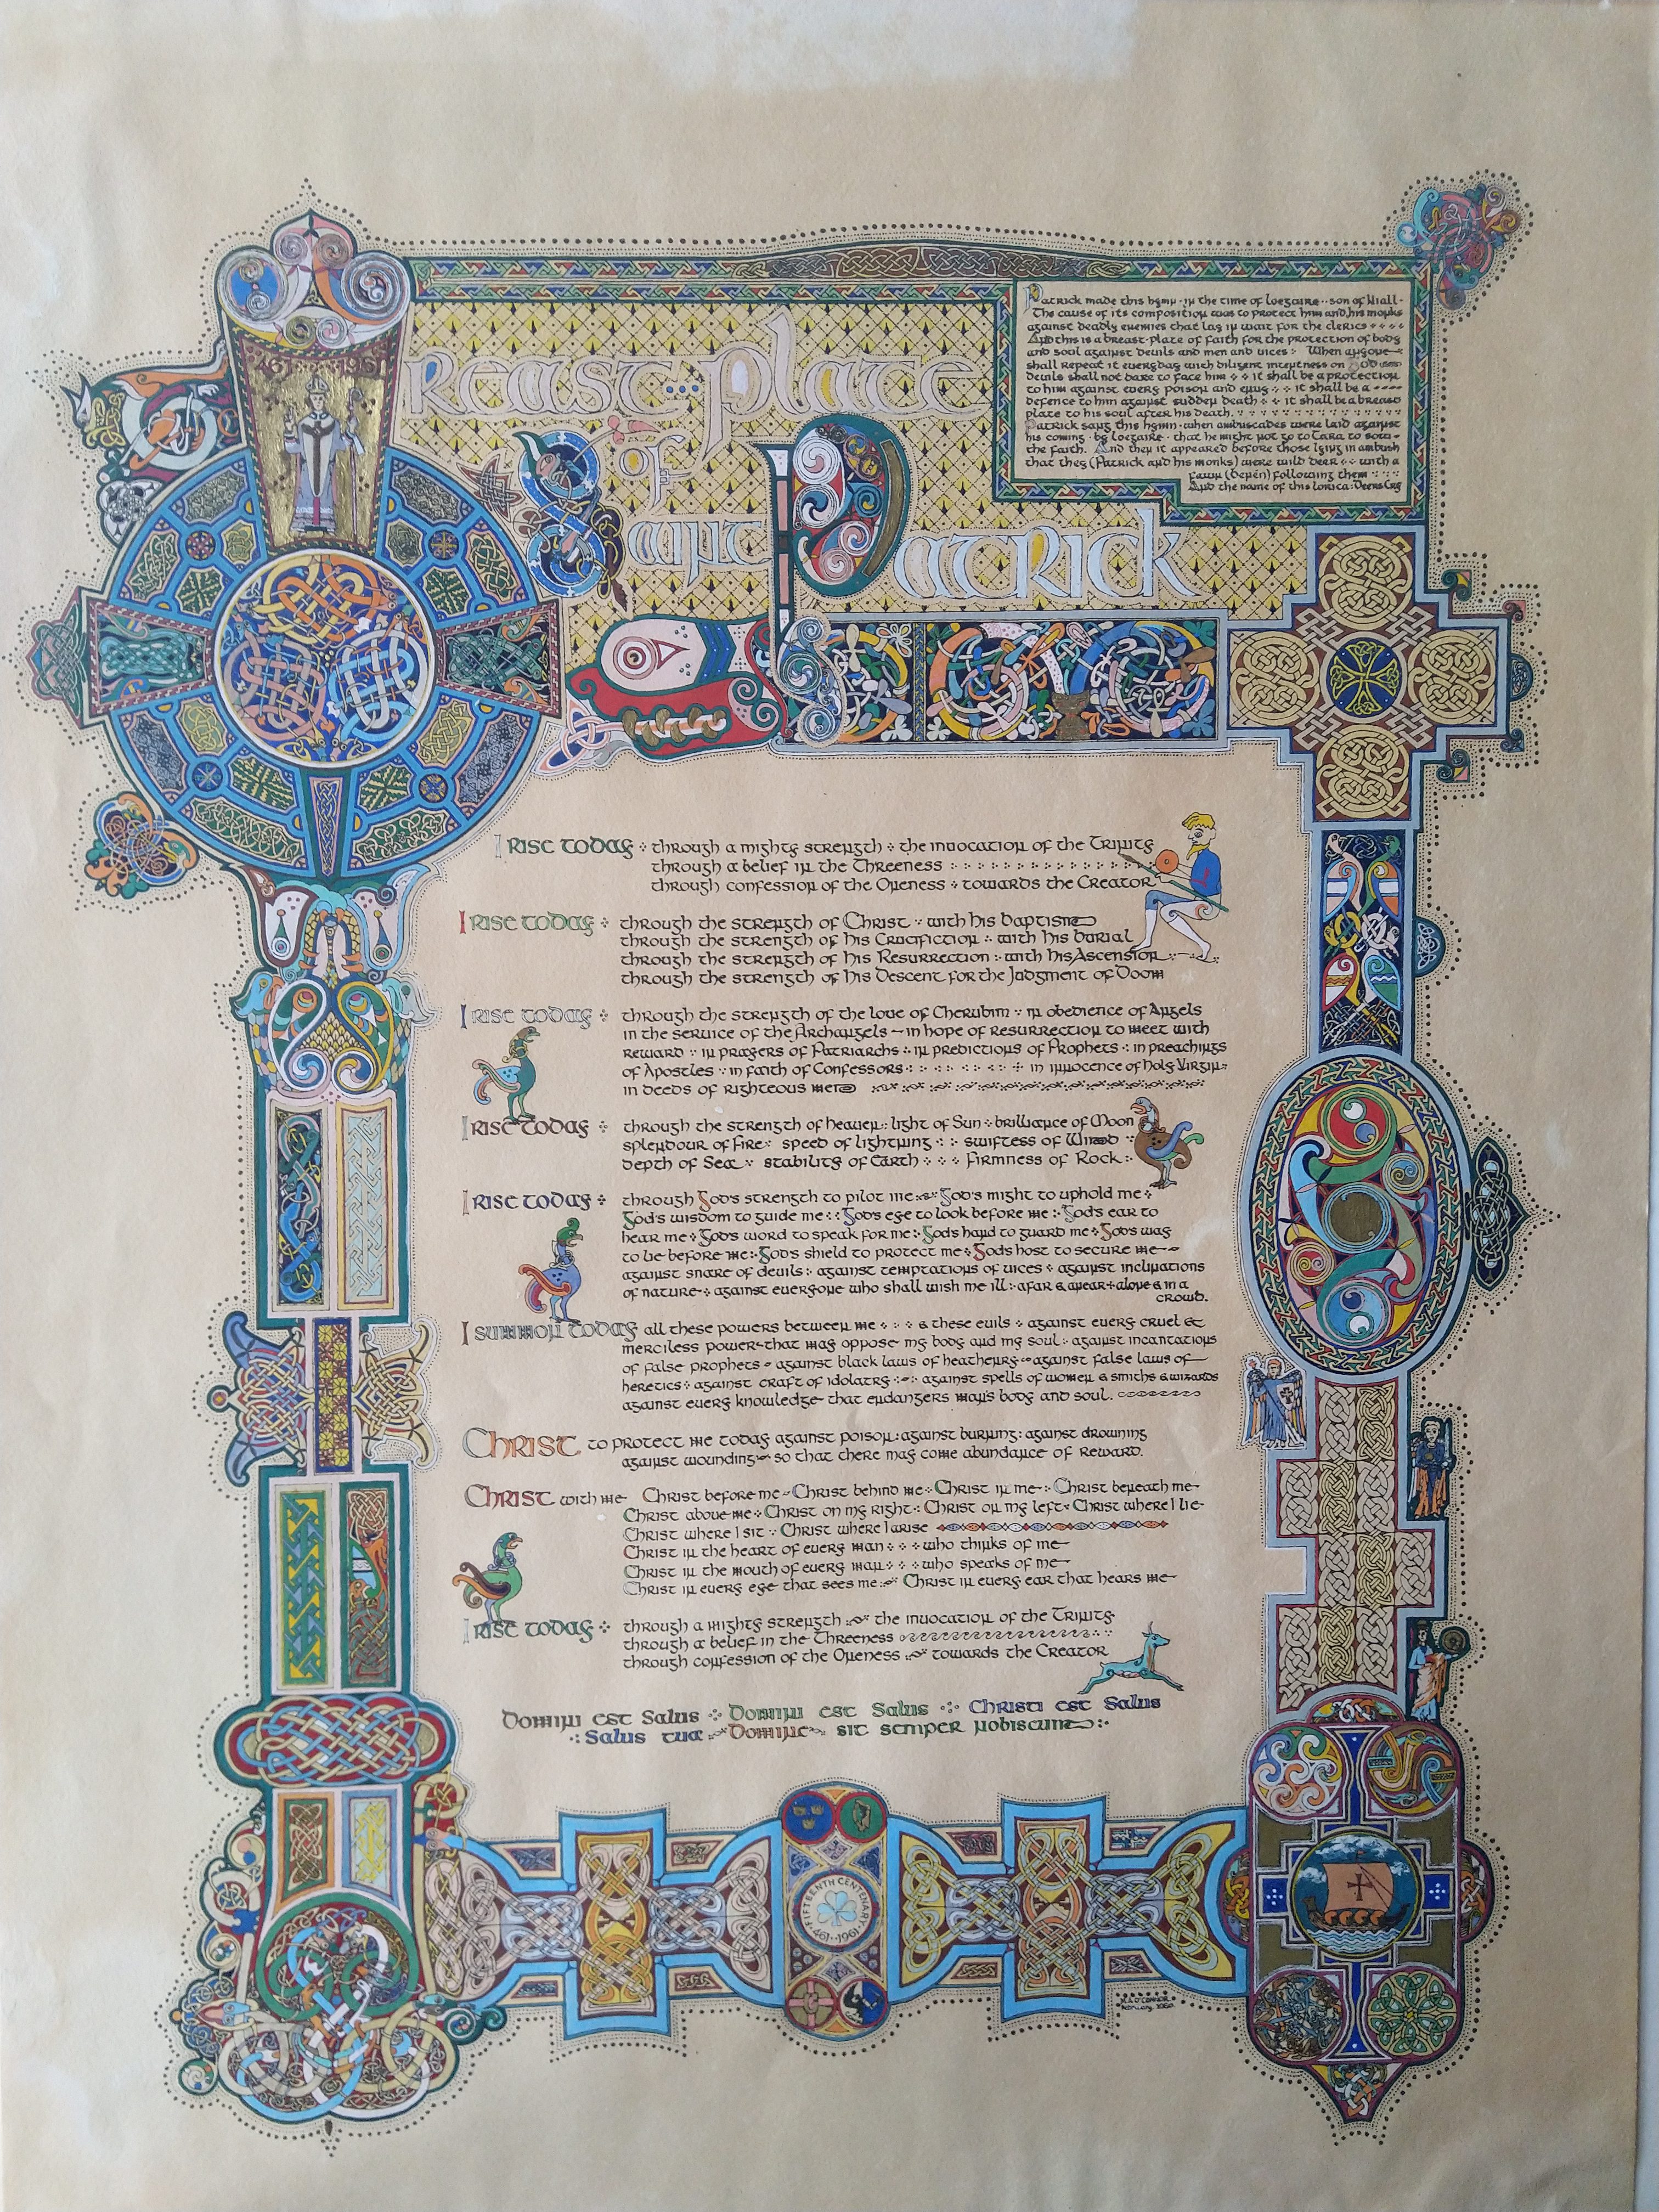 461 1961
Breast Plate
of
Saint Patrick
Patrick made this hymn in the time of Loegaire son of Niall
The cause of its composition was to protect him and his monks
against deadly enemies that lay in wait for the clerics
And this is a breast-plate of Faith for the protection of body
and soul against devils and men and vices: When anyone
shall repeat it everyday with diligent intentness on God
devils shall not dare to face him it shall be a protection
to him against every poison and envy it shall be a
defence to him against sudden death it shall be a breast
plate to his soul after his death.
Patrick sang this hymn when ambuscades were laid against
his coming by Loegaire that he might not go to Tara to sow
the Faith. And then it appeared before those lying in ambush
that they (Patrick and his monks) were wild deer with a
Fawn (Benén) following them
And the name of this lorica: Deers Cry
I RISE TODAY through a mighty strength the invocation of the Trinity
through a belief in the Threeness
through confession of the Oneness towards the Creator
I RISE TODAY through the strength of Christ with his Baptism
through the strength of his Crucifiction with his burial
through the strength of his Resurrection with his Ascension
through the strength of his Descent for the Judgment of Doom
I RISE TODAY through the strength of the love of Cherubim in obedience of Angels
in the service of the Archangels in hope of resurrection to meet with
reward in prayers of Patriarchs in predictions of Prophets in preachings
of Apostles in faith of Confessors in innocence of Holy Virgins
in deeds of righteous men
I RISE TODAY through the strength of heaven light of Sun brilliance of Moon
splendour of fire speed of lightning swiftess of Wind
depth of Sea stability of Earth Firmness of Rock
I RISE TODAY through God's strength to pilot me God's might to uphold me
God's wisdom to guide me God's eye to look before me God's ear to
hear me God's word to speak for me God's hand to guard me God's way
to lie before me God's shield to protect me God's host to secure me
against snare of devils against temptations of vices against inclinations
of nature against everyone who shall wish me ill afar & anear alone & in a
crowd.
I SUMMON TODAY all these powers between me & these evils against every cruel &
merciless power that may oppose my body and my soul against incantations
of false prophets against black laws of heathenry against false laws of
heretics against craft of idolatry against spells of women & smiths & wizards
against every knowledge that endangers man's body and soul.
CHRIST to protect me today against poison against burning: against drowning
against wounding so that there may come abundance of reward.
CHRIST with me Christ before me Christ behind me Christ in me Christ beneath me
Christ above me Christ on my right Christ on my left Christ where I lie
Christ where I sit Christ where I arise
Christ in the heart of every man who thinks of me
Christ in the mouth of every man who speaks of me
Christ in every eye that sees me Christ in every ear that hears me
I RISE TODAY through a mighty strength the invocation of the Trinity
through a belief in the Threeness
through confession of the Oneness towards the Creator
Domini est Salus Domini est Salus Christi est Salus
Salus tua Domine sit semper nobiscum
FIFTEENTH CENTENARY
461 1961
O'CONNOR